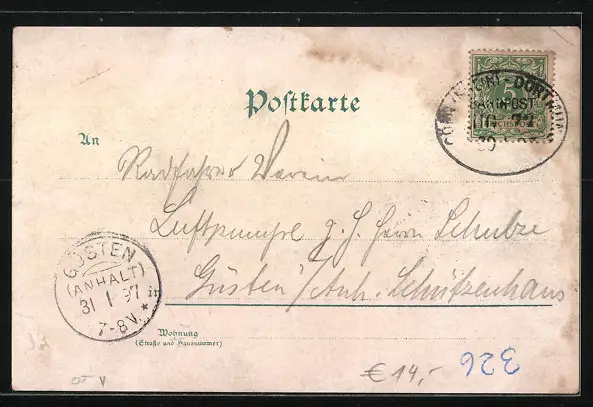 Postkarte
CÖLN (RHEIN) - DORTMUND
5
BAHNPOST
REICHSPOST
30
An
Radfahrer Verein
Luftpumpe z. H. Herrn Schulze
Güsten / Anh. Schützenhaus
in
GÜSTEN
(ANHALT)
31 1 97
7-8 V. *
Wohnung
(Straße und Hausnummer)
€ 14,-
326